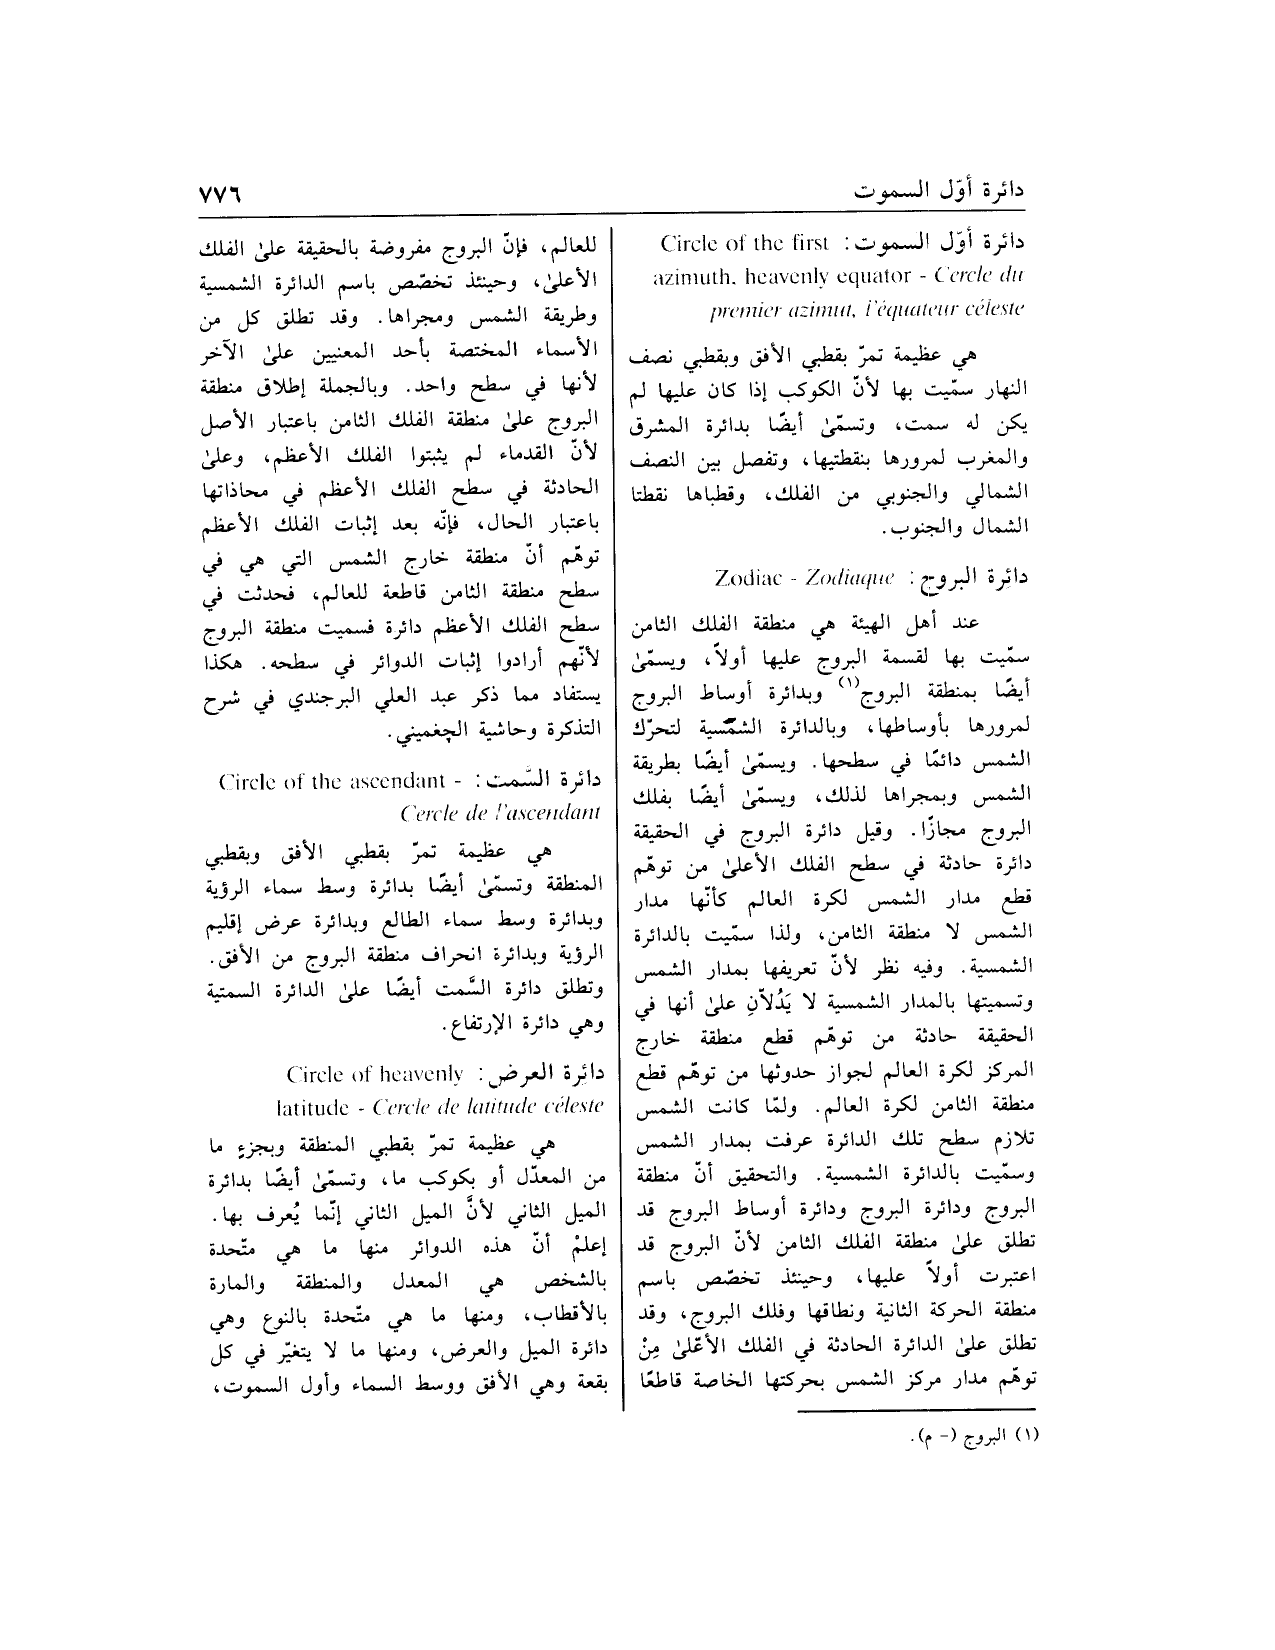 دائرة أوّل السموت
٧٧٦
دائرة أوّل السموت: Circle of the first
azimuth, heavenly equator - Cercle du
premier azimut, l'équateur céleste
هي عظيمة تمرّ بقطبي الأفق وبقطبي نصف
النهار سمّيت بها لأنّ الكوكب إذا كان عليها لم
يكن له سمت، وتسمّىٰ أيضًا بدائرة المشرق
والمغرب لمرورها بنقطتيها، وتفصل بين النصف
الشمالي والجنوبي من الفلك، وقطباها نقطتا
الشمال والجنوب.
دائرة البروج: Zodiac - Zodiaque
عند أهل الهيئة هي منطقة الفلك الثامن
سمّيت بها لقسمة البروج عليها أولاً، ويسمّىٰ
أيضًا بمنطقة البروج(١) وبدائرة أوساط البروج
لمرورها بأوساطها، وبالدائرة الشمسية لتحرّك
الشمس دائمًا في سطحها. ويسمّىٰ أيضًا بطريقة
الشمس وبمجراها لذلك، ويسمّىٰ أيضًا بفلك
البروج مجازًا. وقيل دائرة البروج في الحقيقة
دائرة حادثة في سطح الفلك الأعلىٰ من توهّم
قطع مدار الشمس لكرة العالم كأنّها مدار
الشمس لا منطقة الثامن، ولذا سمّيت بالدائرة
الشمسية. وفيه نظر لأنّ تعريفها بمدار الشمس
وتسميتها بالمدار الشمسية لا يَدُلاّنِ علىٰ أنها في
الحقيقة حادثة من توهّم قطع منطقة خارج
المركز لكرة العالم لجواز حدوثها من توهّم قطع
منطقة الثامن لكرة العالم. ولمّا كانت الشمس
تلازم سطح تلك الدائرة عرفت بمدار الشمس
وسمّيت بالدائرة الشمسية. والتحقيق أنّ منطقة
البروج ودائرة البروج ودائرة أوساط البروج قد
تطلق علىٰ منطقة الفلك الثامن لأنّ البروج قد
اعتبرت أولاً عليها، وحينئذ تخصّص باسم
منطقة الحركة الثانية ونطاقها وفلك البروج، وقد
تطلق علىٰ الدائرة الحادثة في الفلك الأعْلىٰ مِنْ
توهّم مدار مركز الشمس بحركتها الخاصة قاطعًا
(١) البروج (- م).
للعالم، فإنّ البروج مفروضة بالحقيقة علىٰ الفلك
الأعلىٰ، وحينئذ تخصّص باسم الدائرة الشمسية
وطريقة الشمس ومجراها. وقد تطلق كل من
الأسماء المختصة بأحد المعنيين علىٰ الآخر
لأنها في سطح واحد. وبالجملة إطلاق منطقة
البروج علىٰ منطقة الفلك الثامن باعتبار الأصل
لأنّ القدماء لم يثبتوا الفلك الأعظم، وعلىٰ
الحادثة في سطح الفلك الأعظم في محاذاتها
باعتبار الحال، فإنّه بعد إثبات الفلك الأعظم
توهّم أنّ منطقة خارج الشمس التي هي في
سطح منطقة الثامن قاطعة للعالم، فحدثت في
سطح الفلك الأعظم دائرة فسميت منطقة البروج
لأنّهم أرادوا إثبات الدوائر في سطحه. هكذا
يستفاد مما ذكر عبد العلي البرجندي في شرح
التذكرة وحاشية الچغميني.
دائرة السَّمت: Circle of the ascendant -
Cercle de l'ascendant
هي عظيمة تمرّ بقطبي الأفق وبقطبي
المنطقة وتسمّىٰ أيضًا بدائرة وسط سماء الرؤية
وبدائرة وسط سماء الطالع وبدائرة عرض إقليم
الرؤية وبدائرة انحراف منطقة البروج من الأفق.
وتطلق دائرة السَّمت أيضًا علىٰ الدائرة السمتية
وهي دائرة الإرتفاع.
دائِرة العرض: Circle of heavenly
latitude - Cercle de latitude céleste
هي عظيمة تمرّ بقطبي المنطقة وبجزءٍ ما
من المعدّل أو بكوكب ما، وتسمّىٰ أيضًا بدائرة
الميل الثاني لأنَّ الميل الثاني إنّما يُعرف بها.
إعلمْ أنّ هذه الدوائر منها ما هي متّحدة
بالشخص هي المعدل والمنطقة والمارة
بالأقطاب، ومنها ما هي متّحدة بالنوع وهي
دائرة الميل والعرض، ومنها ما لا يتغيّر في كل
بقعة وهي الأفق ووسط السماء وأول السموت،